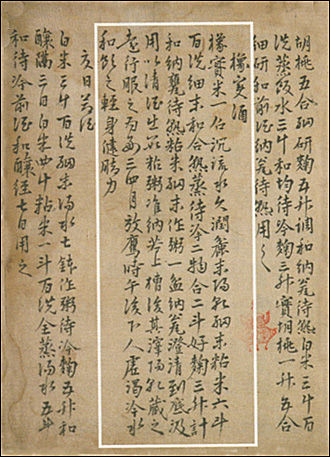 胡桃五合細研五升調和納瓮待熟白米三斗百
洗蒸飯水三斗和均待冷麴三升實胡桃一升五合
細研和前酒納瓮待熟用之
橡實酒
橡實米一石沉流水久潤米陽乾細末粘米六斗
百洗細末和合熟蒸待冷二物合二斗好麴三升計
和納甕待熟粘米細末作粥一盆納瓮澄清到底汲
用以清酒生粘粥准納若上槽後其滓陽乾藏之
遠行服之而每三四月放鷹時午後下人虛渴冷水
和飲之輕身健脚力
亥日酒
白米三斗百洗細末湯水七鉢作粥待冷麴五升和
釀隔三日白米四斗粘米一斗百洗全蒸湯水五斗
和待冷前酒和釀經七日用之